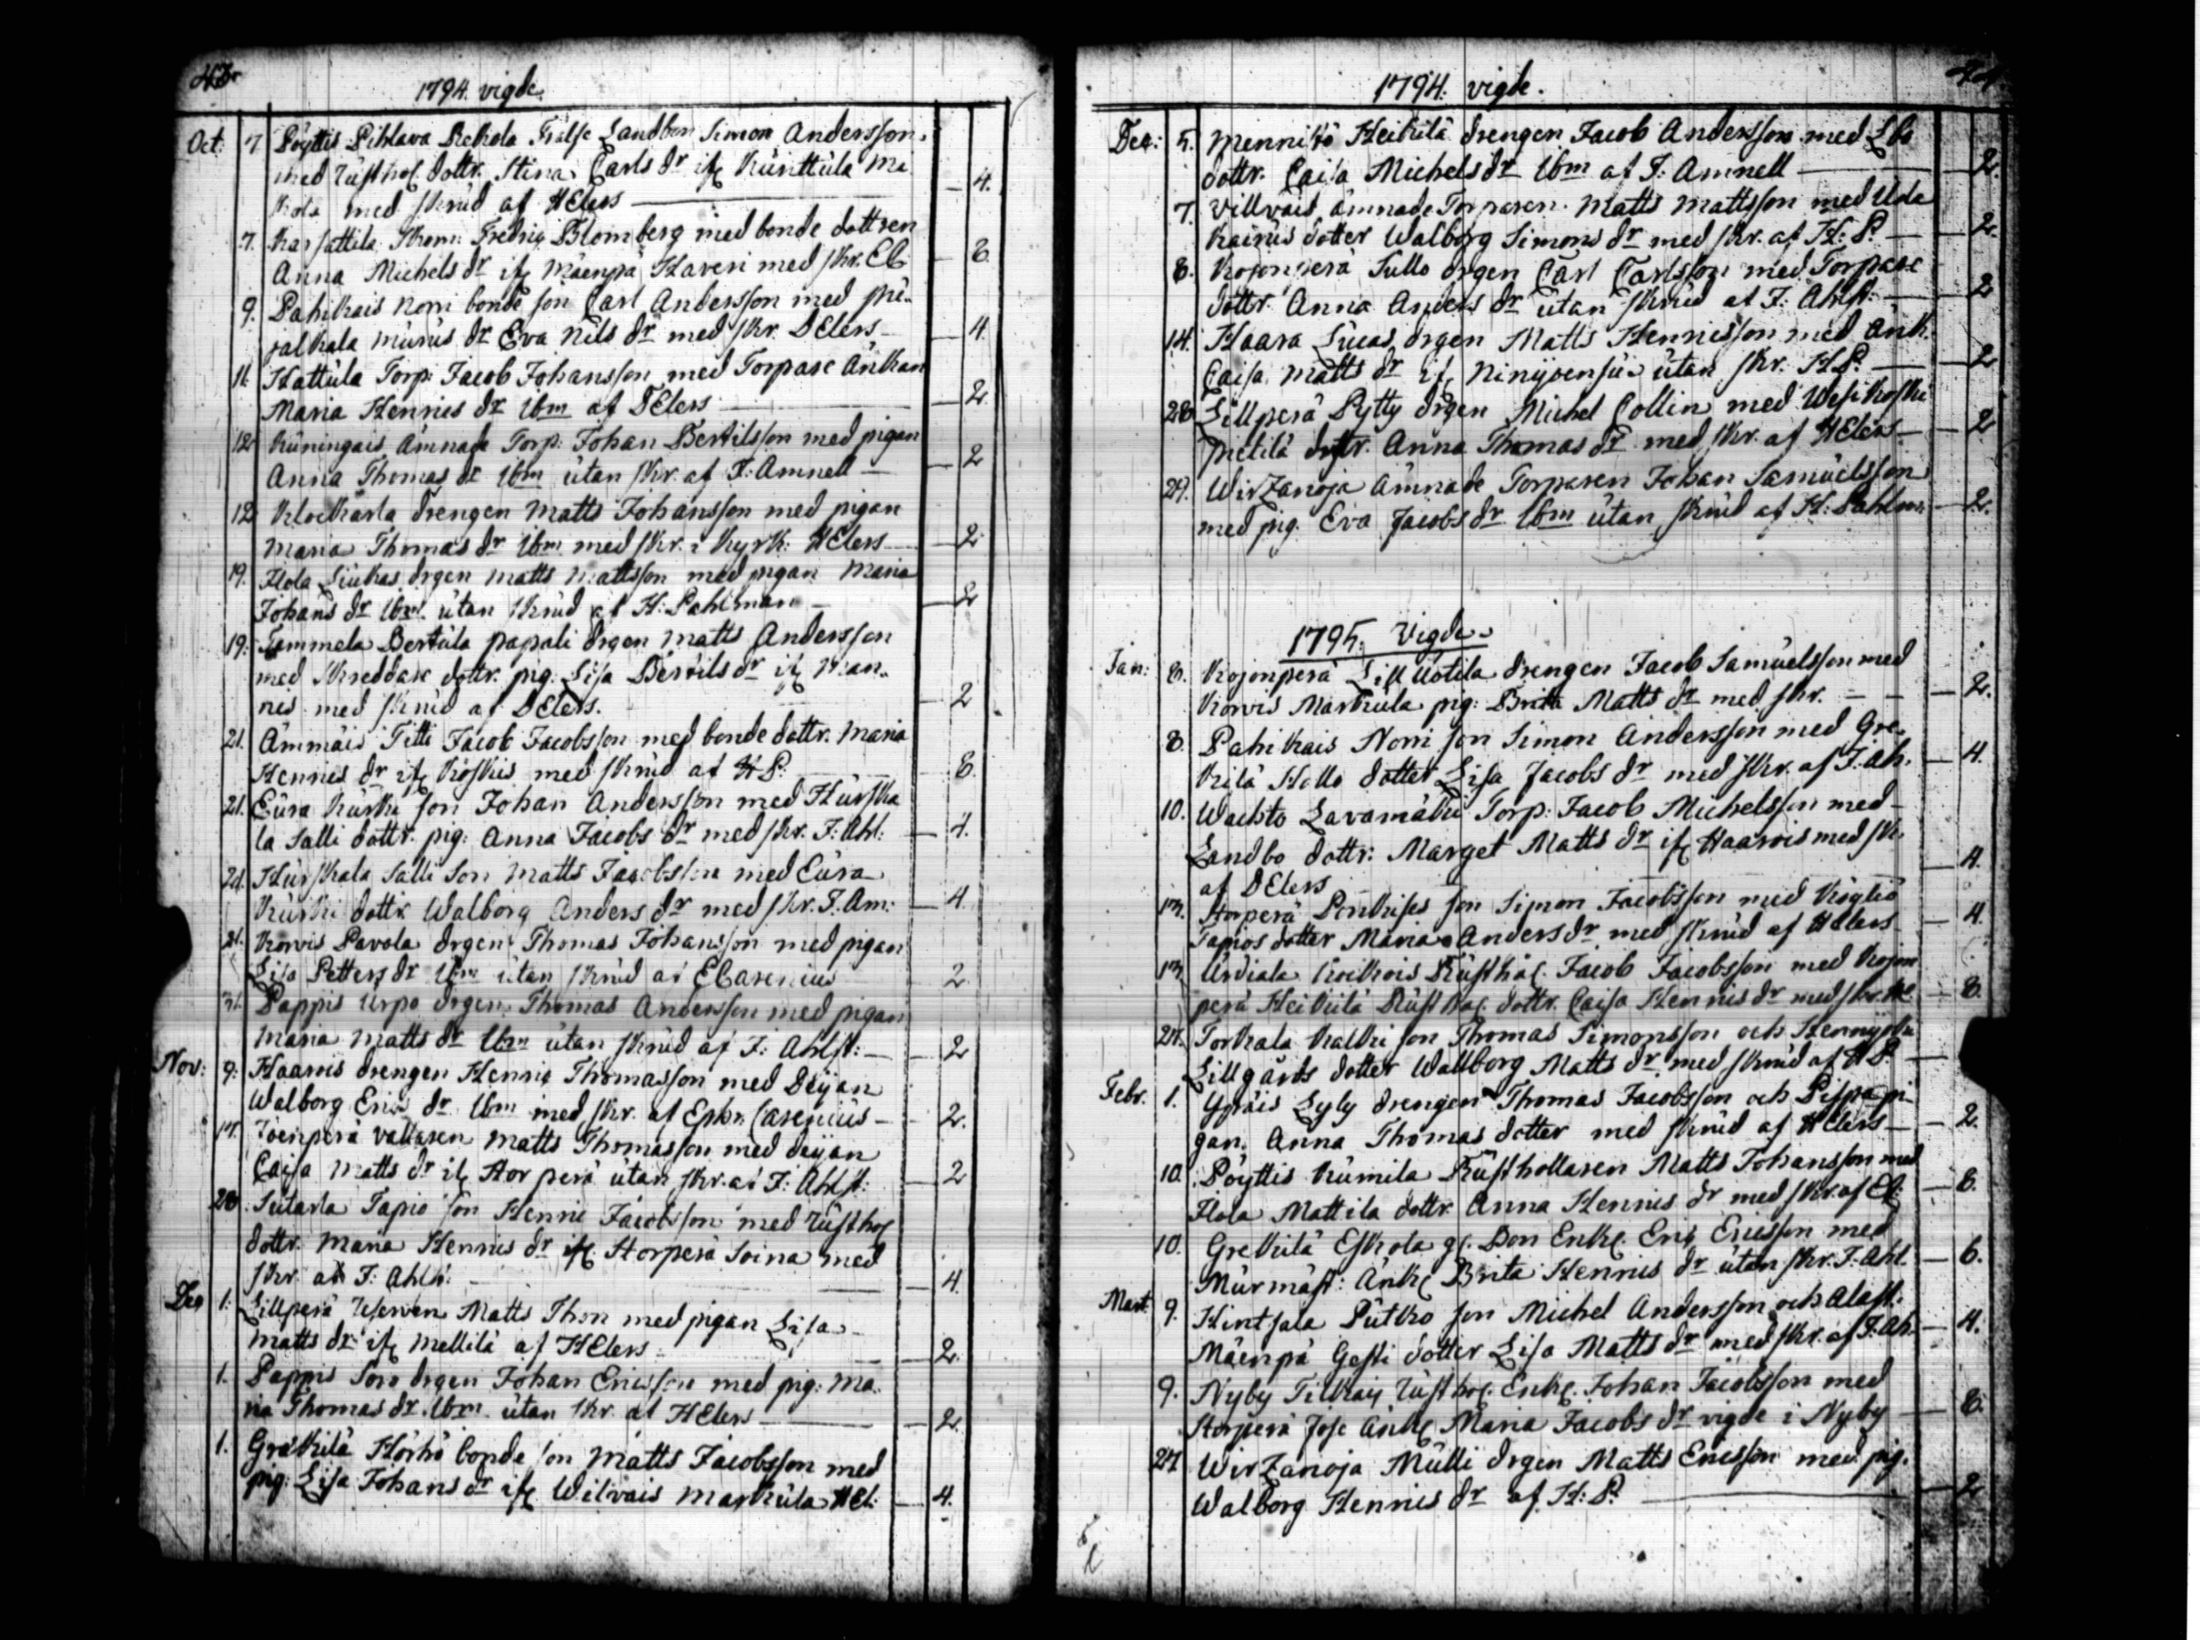 43.
1794. vigde.
Oct. 7 Pöyttis Pihlava Frälse Landbon Simon Andersson
med Rusthol. dottr. Stina Carls dr ifr Künttüla Ma
kola med skrud af HElers — 4.
7. Karsattila Fredric Blomberg med bonde dottren
Anna Michels dr ifr Mäenpä Haveri med skr. El. — 8.
9. Pahikais Norri bonde son Carl Andersson med Pri-
jalkala Murus dr Eva Nils dr med skr. DElers — 4.
11. Hattula Torp. Jacob Johansson med Torpare Änkan
Maria Henrics dr Ibm af DElers — 2.
12 Küningais Ämnade Torp: Johan Bertilsson med pigan
Anna Thomas dr Ibm utan skr. af F: Amnell — 2
12 Klockarla drengen Matts Johansson med pigan
Maria Thomas dr Ibm med skr. i Kyrk: HElers — 2.
19. Ilola Liukas drgen Matts Mattsson med pigan Maria
Johans dr Ibm. utan skrud af H. Pahlman — 2
19. Tammela Bertula papali drgen Matts Andersson
med skreddare dottr. pig. Lisa Bertils dr ifr Kan-
nis med skrud af DElers. — 2
21. Ämmäis Titti Jacob Jacobsson med bonde dottr. Maria
Henrics dr ifr Köskis med skrud af HP. — 8.
21. Eura Kürki son Johan Andersson med Hürska
la Salli dottr. pig: Anna Jacobs dr med skr. F: Ahl: — 4.
21. Hürskala Salli Son Matts Jacobsson med Eura
Kürki dottr. Walborg Anders dr med skr. F. Am: — 4.
21. Korvis Pavola drgen Thomas Johansson med pigan
Lisa Petters dr Ibm utan skrud af ECarenius — 2
31. Pappis Urpo drgen Thomas Andersson med pigan
Maria Matts dr Ibm utan skrud af F: Ahlst: — 2
Nov: 9. Haarois drengen Henric Thomasson med Deijan
Walborg Erics dr Ibm med skr. af Ephr. Carenius — 2.
17. Joenperä vallaren Matts Thomasson med deijan
Caisa Matts dr ifr Storperä utan skr. af F: Ahlst: — 2
28 Sutarla Tapio son Henric Jacobsson med Rusthol
dottr. Maria Henrics dr ifr Storperä Soina med
skr. af F: Ahlst: — 4.
Dec 1. Lillperä Matts Thson med pigan Lisa
Matts dr ifr Mellilä af HElers — 2.
1. Pappis Son drgen Johan Ericsson med pig: Ma-
ria Thomas dr Ibm utan skr. af HElers — 2.
1. Gräkilä Hörhö bonde son Matts Jacobsson med
pig. Lisa Johans dr ifr Wilvais Markula HEl: — 4.
44
1794: vigde.
Dec: 5. Mennikö Heikilä drengen Jacob Andersson med Lbo
dottr. Caisa Michels dr Ibm af F: Amnell — 2.
7. Villvais ämnade Torparen Matts Mattsson med
Kainus dotter Walborg Simons dr med skr. af H: P. — 2.
8. Kojonperä Sullo drgen Carl Carlsson med Torpare
dottr. Anna Anders dr utan skrud af F: Ahlst: — 2
14. Haara Lucas drgen Matts Henricsson med Änk.
Caisa Matts dr ifr Ninijoensuu utan skr. HP. — 2
28 Lillperä Pytty drgen Michel Collin med Wesikoski
Pietilä dottr. Anna Thomas dr med skr. af HElers — 2
29. Wirzanoja Ämnade Torparen Johan Samuelsson
med pig. Eva Jacobs dr Ibm utan skrud af H: Pahlm: — 2.
1795. Vigde.
Jan: 8. Kojonperä Lill Uotila drengen Jacob Samuelsson med
Korvis Markula pig: Brita Matts dr med skr. — 2.
8. Pahikais Norri son Simon Andersson med Gre-
kilä Hollo dotter Lisa Jacobs dr med skr. af F. Ah. — 4.
10. Wachto Lavamäki Torp: Jacob Michelsson med
Landbo dottr: Marget Matts dr ifr Haarois med sk.
af DElers — 4.
13. Storperä Penkises son Simon Jacobsson med Kögliö
Tapios dotter Maria Anders dr med skrud af HElers — 4.
13. Urdiala Koikois Rusthol. Jacob Jacobsson med Kojon
perä Heikilä Rusthol. dottr. Caisa Henrics dr med skr. — 8.
27. Torkala Kalki son Thomas Simonsson och Hennijoki
Lillgårds dotter Wallborg Matts dr med skrud af HP. —
Febr. 1. Ypäis Lyly drengen Thomas Jacobsson och pi-
gan Anna Thomas dotter med skrud af HElers — 2.
10. Pöyttis Kumila Rusthollaren Matts Johansson med
Ilola Mattila dottr. Anna Henrics dr med skr. af El: — 8.
10. Grekilä Eskola gl. Bon Enkl. Eric Ericsson med
Murmäst: Änkl Brita Henrics dr utan skr. F: Ahl. — 6.
Mart: 9. Hintsala Putko son Michel Andersson och Alast.
Mäenpä Gesti dotter Lisa Matts dr med skr. af F: Ah. — 4.
9. Nyby Tilkais Rusthol. Enkl. Johan Jacobsson med
Storperä Jose Änkl Maria Jacobs dr vigde i Nyby — 8.
27 Wirzanoja Mülli drgen Matts Ericsson med pig.
Walborg Henrics dr af H: P. — 2